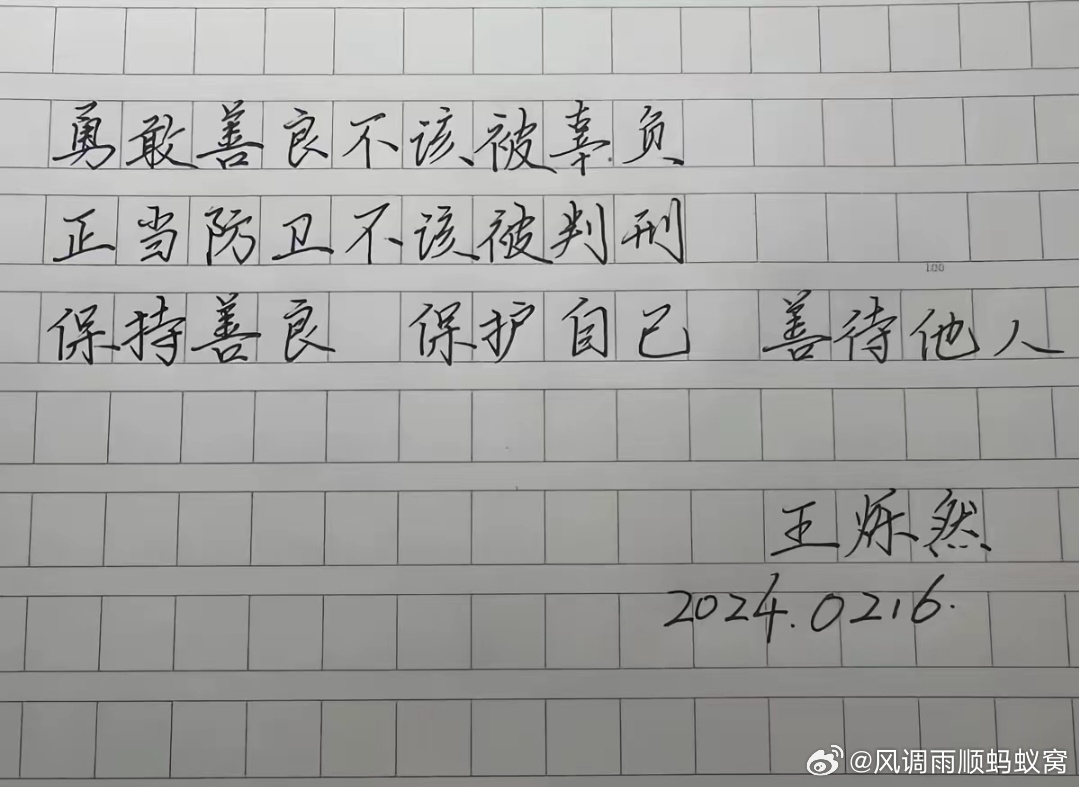 勇敢善良不该被辜负
正当防卫不该被判刑
100
保持善良 保护自己 善待他人
王烁然
2024.0216.
@风调雨顺蚂蚁窝